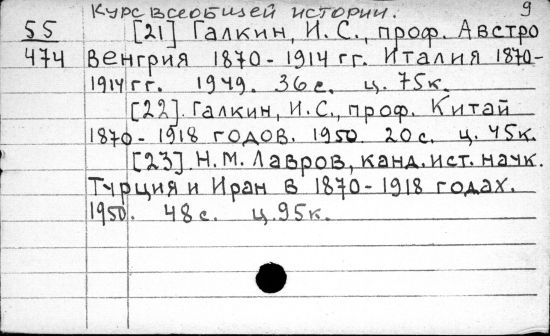 Курс всеобщей истории. 9
55 [21] Галкин, И.С., проф. Австро
474 Венгрия 1870-1914 гг. Италия 1870-
1914 гг. 1949. 36 с. ц. 75к.
[22]. Галкин, И.С., проф. Китай
1870-1918 годов. 1950. 20 с. ц. 45к.
[23]. Н.М. Лавров, канд. ист. наук.
Турция и Иран в 1870-1918 годах.
1950. 48 с. ц. 95к.